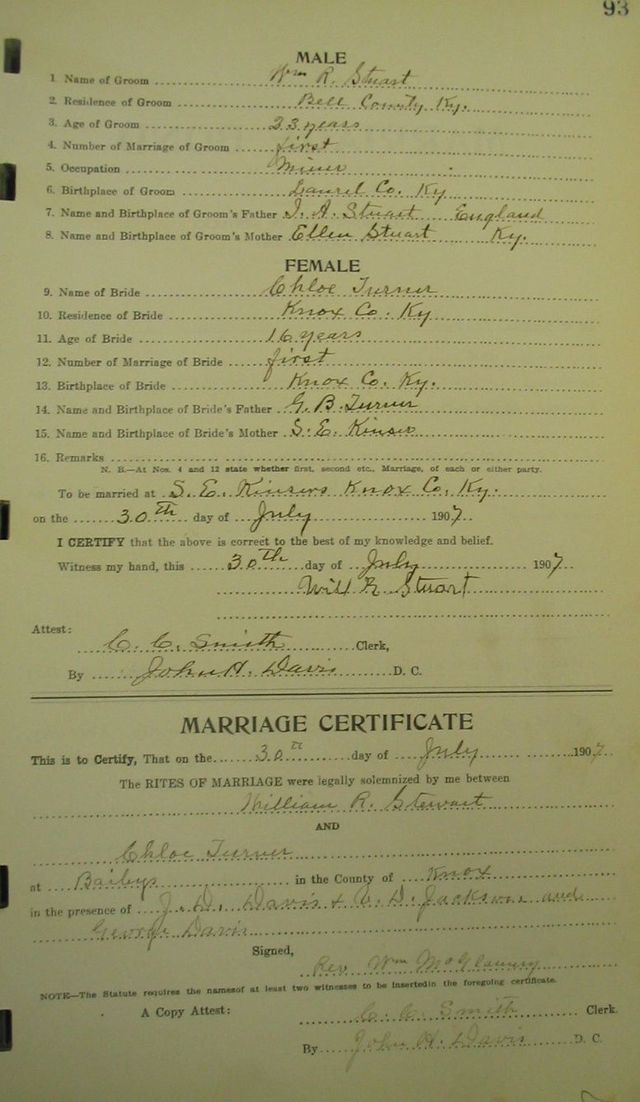 93
MALE
1 Name of Groom Wm R. Stuart
2. Residence of Groom Bell County Ky.
3. Age of Groom 23 years
4. Number of Marriage of Groom first
5. Occupation Miner
6. Birthplace of Groom Laurel Co. Ky
7. Name and Birthplace of Groom's Father J. A. Stuart England
8. Name and Birthplace of Groom's Mother Ellen Stuart Ky.
FEMALE
9. Name of Bride Chloe Turner
10. Residence of Bride Knox Co. Ky
11. Age of Bride 16 years
12. Number of Marriage of Bride first
13. Birthplace of Bride Knox Co. Ky.
14. Name and Birthplace of Bride's Father G. B. Turner
15. Name and Birthplace of Bride's Mother S. E. Kinser
16. Remarks
N. B.—At Nos. 4 and 12 state whether first, second etc., Marriage, of each or either party.
To be married at S. E. Kinsers Knox Co. Ky.
on the 30th day of July 1907
I CERTIFY that the above is correct to the best of my knowledge and belief.
Witness my hand, this 30th day of July 1907
Will R Stuart
Attest:
C. C. Smith Clerk,
By John H. Davis D. C.
MARRIAGE CERTIFICATE
This is to Certify, That on the 30th day of July 1907
The RITES OF MARRIAGE were legally solemnized by me between
William R. Stewart
AND
Chloe Turner
at Baileys in the County of Knox
in the presence of J. D. Davis & C. D. Jackson and
George Davis
Signed,
Rev. Wm
NOTE—The Statute requires the namesof at least two witnesses to be insertedin the foregoing certificate.
A Copy Attest: C. C. Smith Clerk.
By John H. Davis D. C.